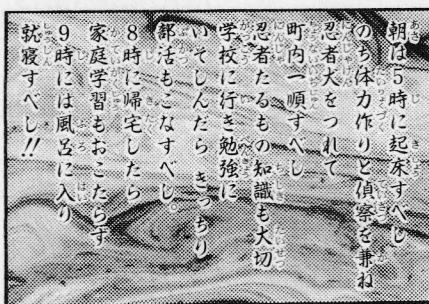 朝は5時に起床すべし
のち体力作りと偵察を兼ね
忍者犬をつれて
町内一順すべし
忍者たるもの知識も大切
学校に行き勉強に
いそしんだら きっちり
部活もこなすべし。
8時に帰宅したら
家庭学習もおこたらず
9時には風呂に入り
就寝すべし!!